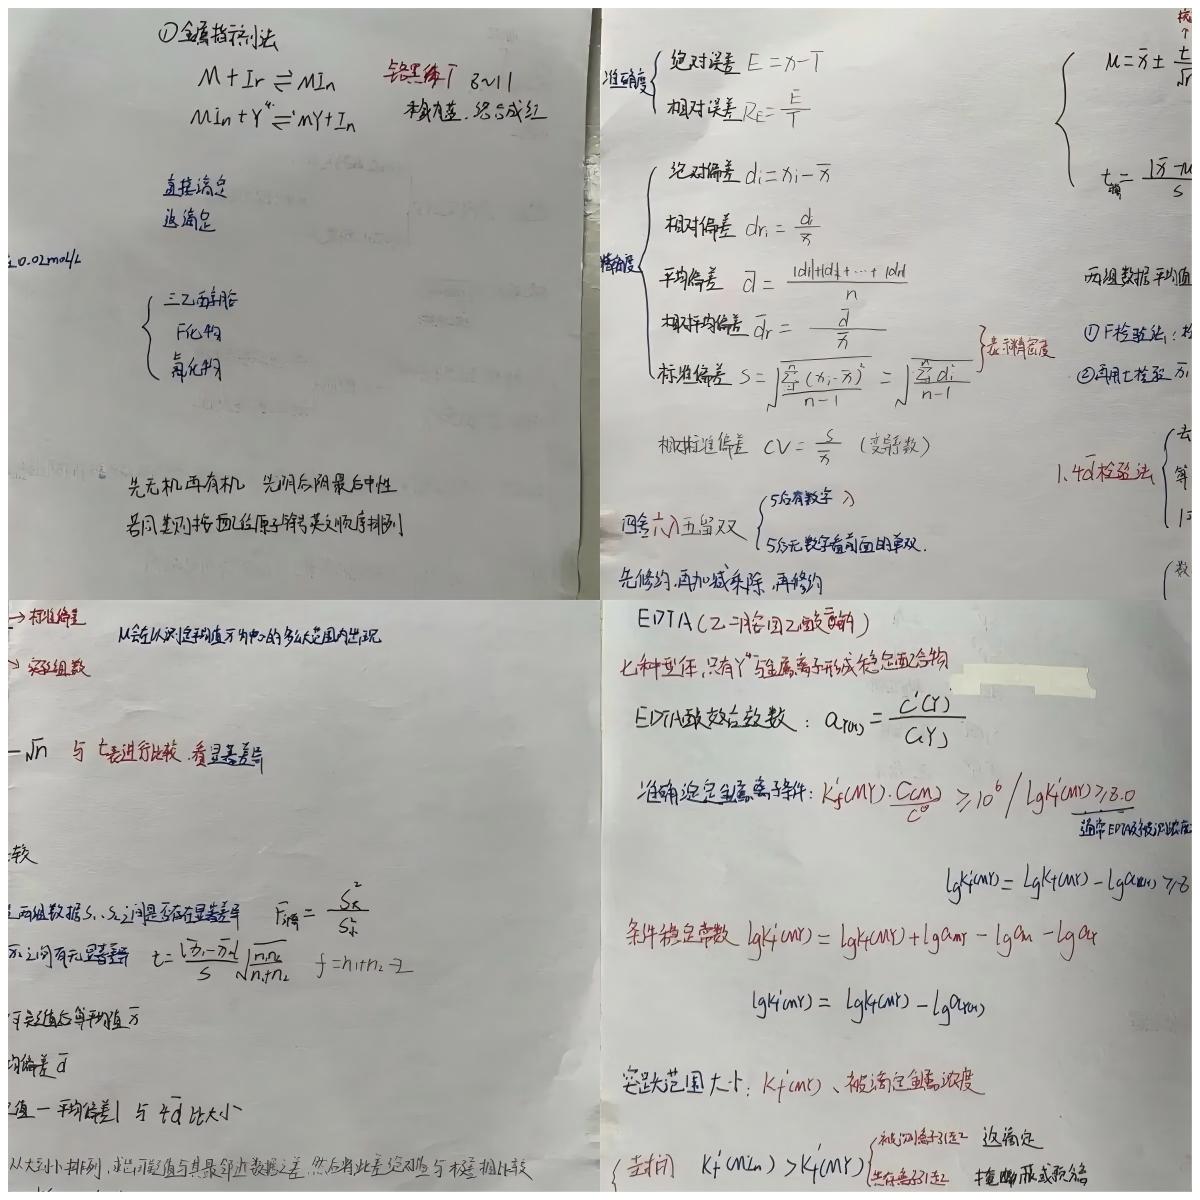 ①金属指示剂法
M + In ⇌ MIn
MIn + Y⁴⁻ ⇌ MY + In
铬黑体T 8~11
本身为蓝,结合成红
直接滴定
返滴定
0.02mol/L
三乙醇胺
F化物
氰化物
先无机再有机 先阴后阳最后中性
若同类则按配位原子 英文顺序排列
准确度
绝对误差 E = x - T
相对误差 RE = E/T
精密度
绝对偏差 di = xi - x̄
相对偏差 dri = di/x̄
平均偏差 d̄ = |d1|+|d2|+…+|dn| / n
相对平均偏差 d̄r = d̄/x̄
标准偏差 S = √(∑(xi-x̄)²/(n-1)) = √(∑di/(n-1))
}表示精密度
相对标准偏差 CV = S/x̄ (变异系数)
四舍六入五留双
5后有数字 入
5后无数字看前面的单双.
先修约,再加减乘除,再修约
μ = x̄ ± t
t = |x̄-μ / S
两组数据平均值
①F检验法:
②再用t检验 x̄1
1.4d̄检验法
去
等
数
→标准偏差
μ会在以测定平均值x̄为中心的多么大范围内出现
→实验组数
√n 与t表进行比较.看显著差异
较
两组数据S₁、S₂之间是否存在显著差异 F = S²大/S²小
x̄₂之间有无显著差异 t = |x̄₁-x̄₂|/S √(n₁n₂/(n₁+n₂)) f = n₁+n₂-2
可疑值后算平均值x̄
均偏差 d̄
值-平均偏差| 与4d̄比大小
从大到小排列,求出可疑值与其最邻近数据之差,然后将此差绝对值与极差相比较
EDTA(乙二胺四乙酸 )
七种型体,只有Y⁴⁻与金属离子形成稳定配合物
EDTA酸效应效数: αY(H) = c'(Y)/c(Y)
准确滴定金属离子条件: K'f(MY)·C(M)/C° ≥ 10⁶ / lgK'f(MY) ≥ 8.0
lgK'f(MY) = lgKf(MY) - lgαY(H) ≥ 8
条件稳定常数 lgK'f(MY) = lgKf(MY) + lgαMY - lgαM - lgαY
lgK'f(MY) = lgKf(MY) - lgαY(H)
突跃范围大小: K'f(MY)、被滴定金属浓度
封闭 K'f(MIn) > K'f(MY)
被测离子引起 返滴定
共存离子引起 掩蔽